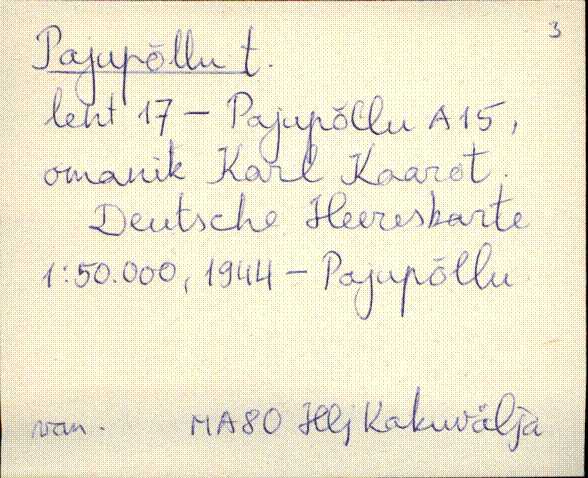 3
Pajupõllu t.
leht 17 – Pajupõllu A15,
omanik Karl Kaarot.
Deutsche Heereskarte
1:50.000, 1944 – Pajupõllu
van. MA80 Hlj Kakuvälja